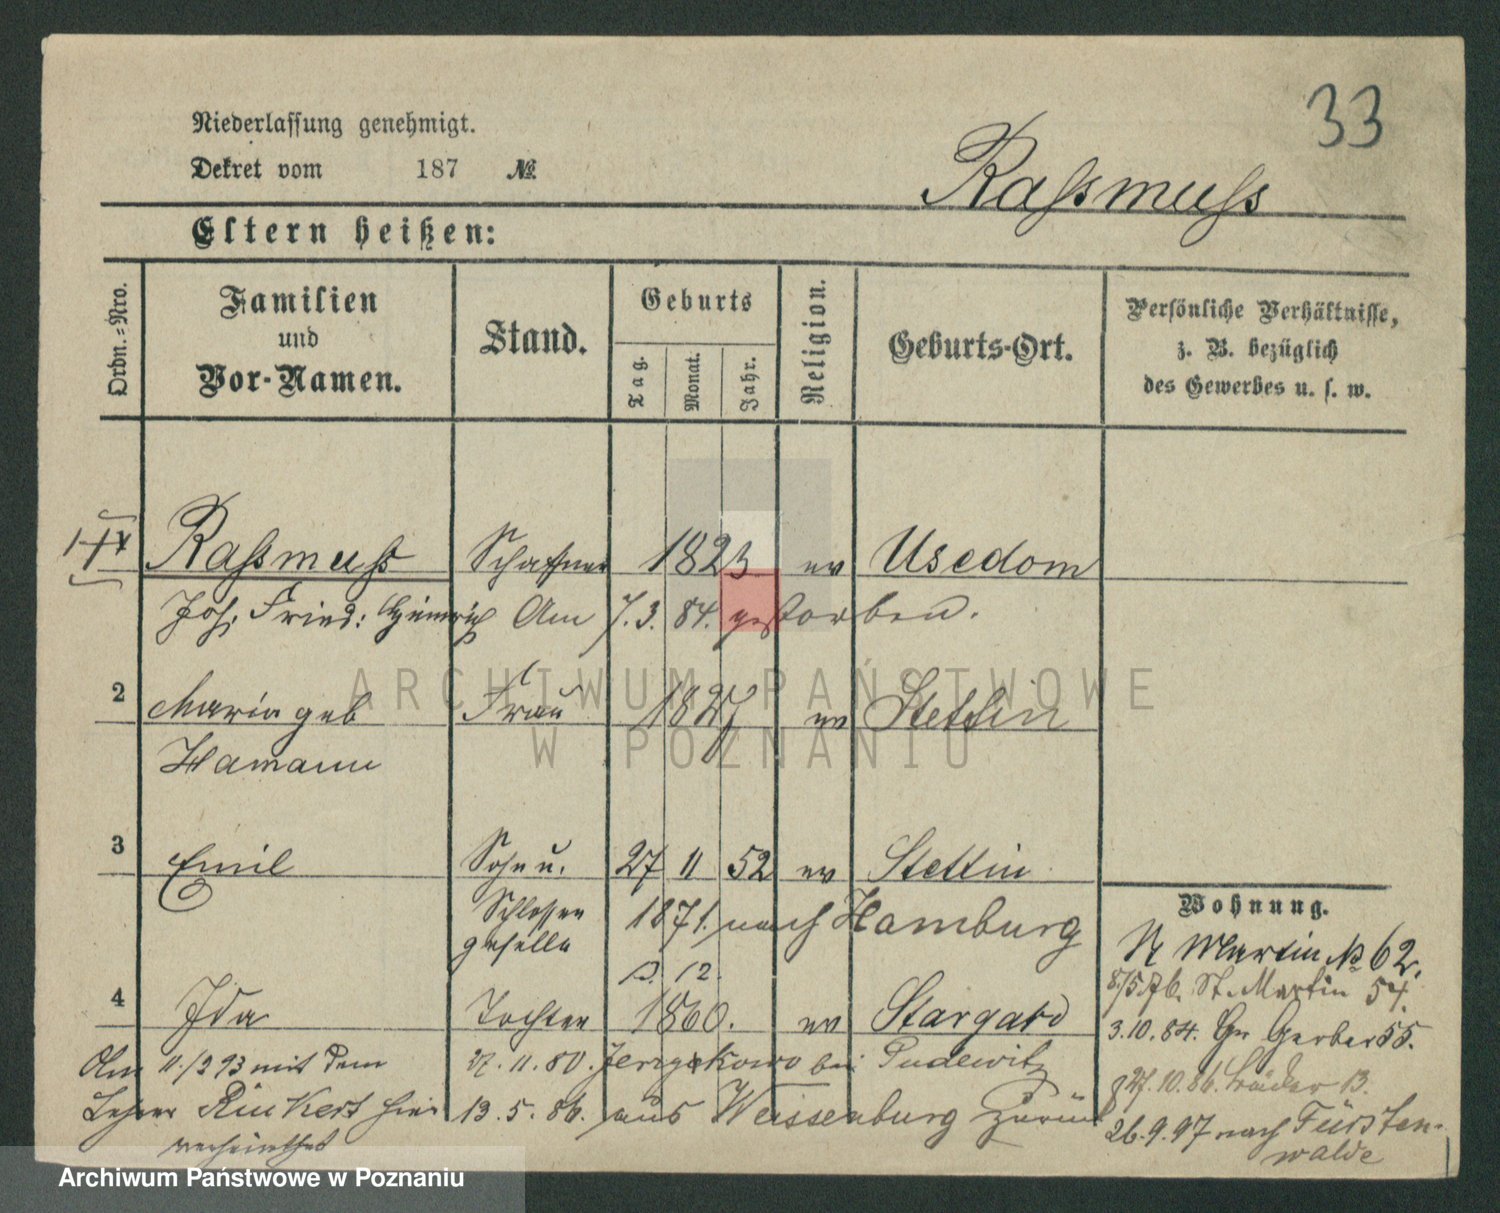 33
Niederlassung genehmigt.
Dekret vom 187 №
Rassmuss
Eltern heißen:
Ordn.=Nro.
Familien
und
Vor-Namen.
Stand.
Geburts
Tag.
Monat.
Jahr.
Religion.
Geburts-Ort.
Persönliche Verhältnisse,
z. B. bezüglich
des Gewerbes u. s. w.
1 Rassmuss Schaffner 1823 ev Usedom
Joh. Fried: Heinrich Am 7.3.84. gestorben.
2 Maria geb Frau 1827 ev Stettin
Hamann
3 Emil Sohn u. 27 11 52 ev Stettin
Schlosser 1871. nach Hamburg
geselle
12.
4 Ida Tochter 1860. ev Stargard
Am 11./3 93 mit dem 27.11.80. Jerzykowo bei Pudewitz
Lehrer Rinkert hier 13.5.86. aus Weissenburg zurück
verheirathet
Wohnung.
St Martin № 62.
8/5 76. St. Martin 54.
3.10.84. Gr Gerber 55.
27.10.86. 13.
26.9.97 nach Fürsten-
walde
ARCHIWUM PAŃSTWOWE
W POZNANIU
Archiwum Państwowe w Poznaniu